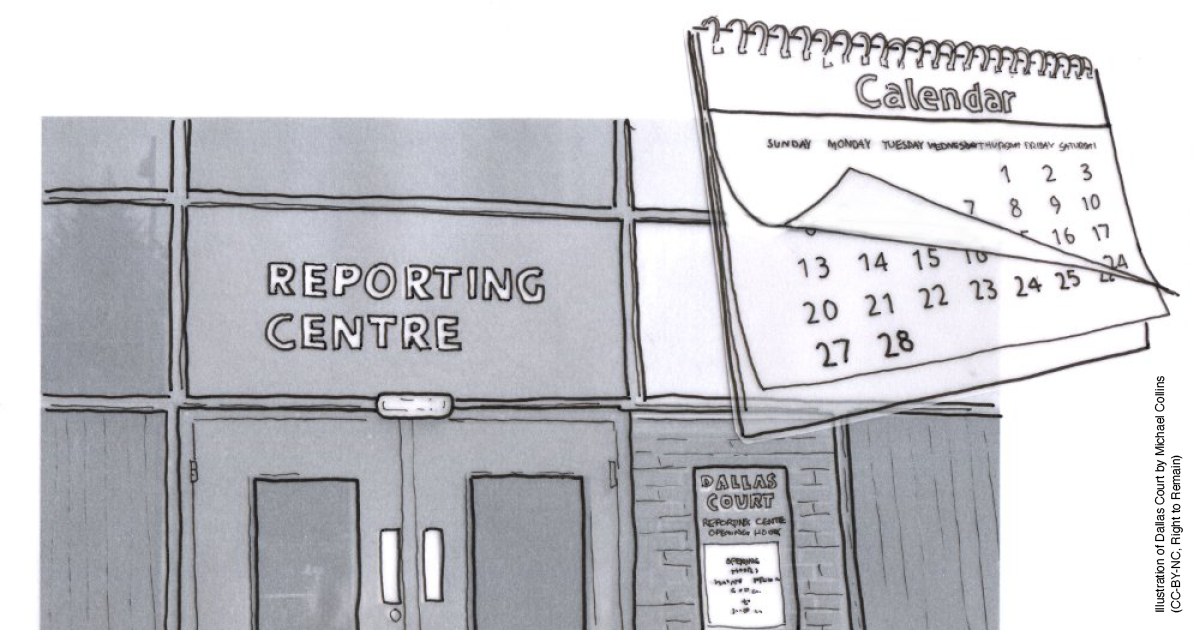 Calendar
SUNDAY MONDAY TUESDAY WEDNESDAY THURSDAY FRIDAY SATURDAY
1 2 3
7 8 9 10
16 17
13 14 15 16 24
20 21 22 23 24 25
27 28
REPORTING
CENTRE
DALLAS
COURT
REPORTING CENTRE
OPENING HOURS
OPENING
Illustration of Dallas Court by Michael Collins
(CC-BY-NC, Right to Remain)